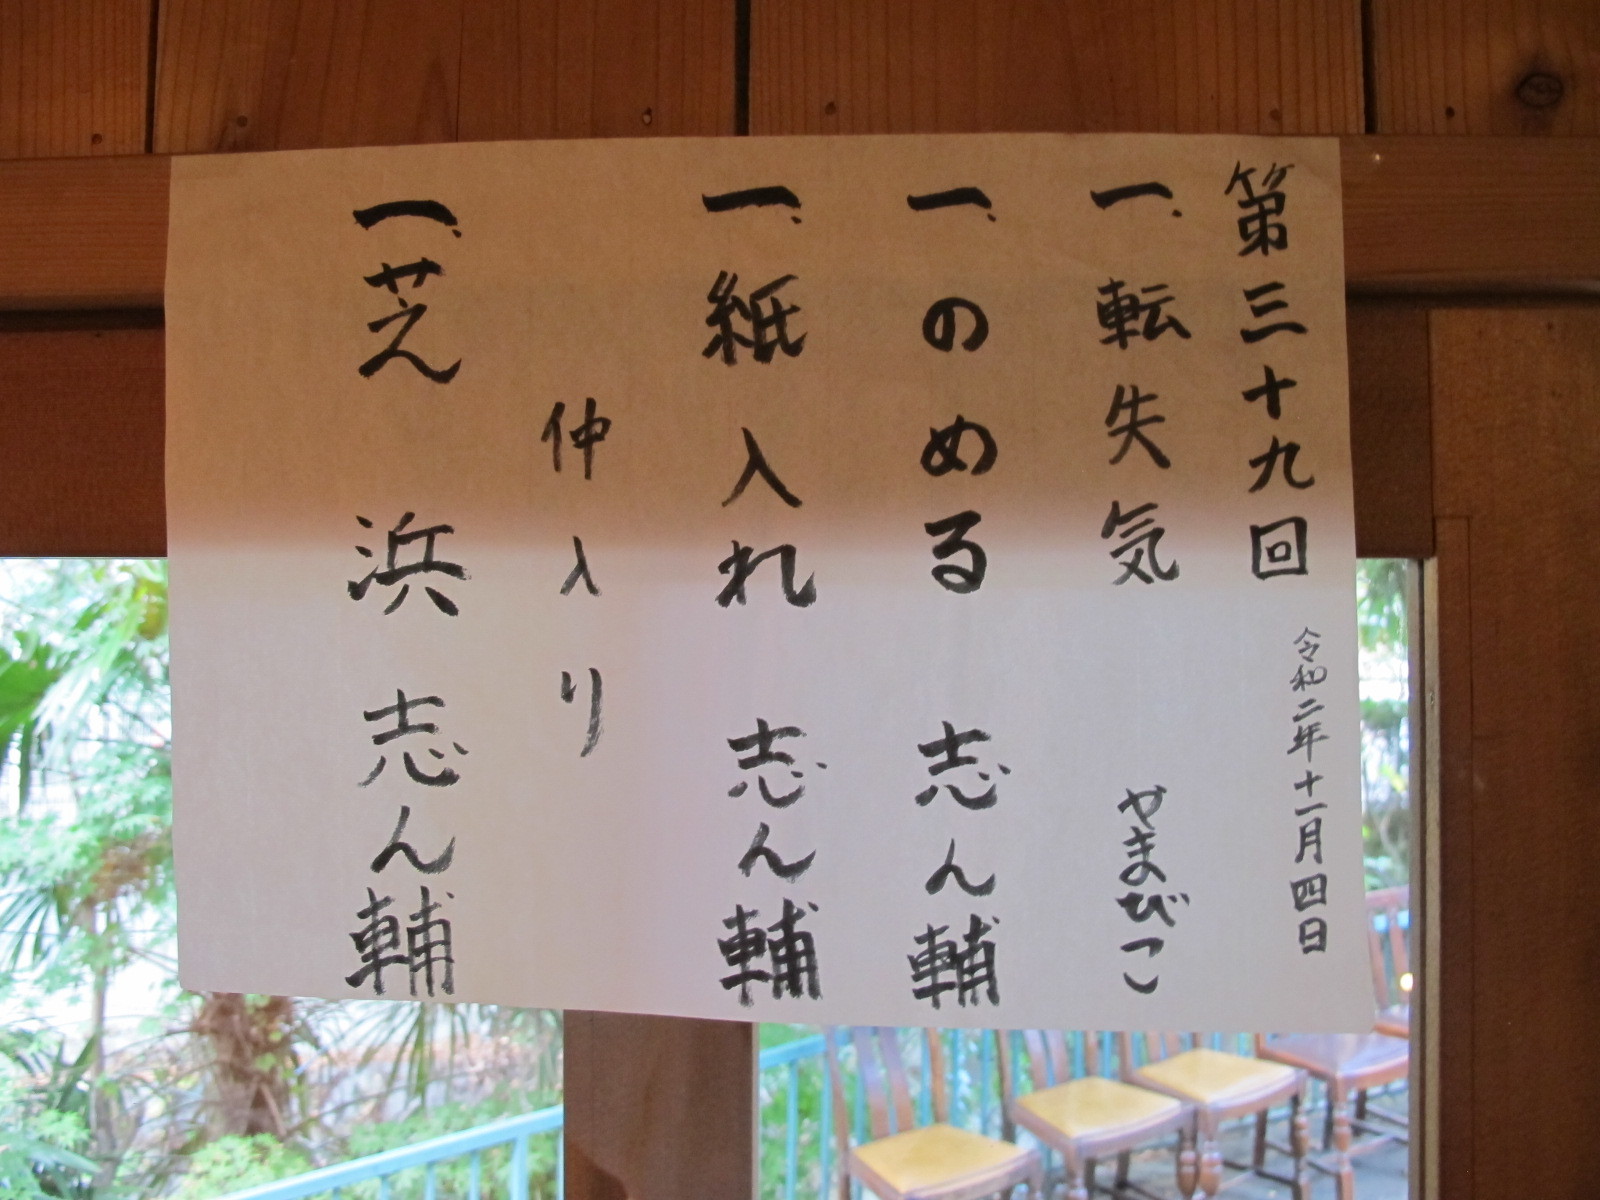 第三十九回 令和二年十一月四日
一、転失気 やまびこ
一、のめる 志ん輔
一、紙入れ 志ん輔
仲入り
一、芝浜 志ん輔